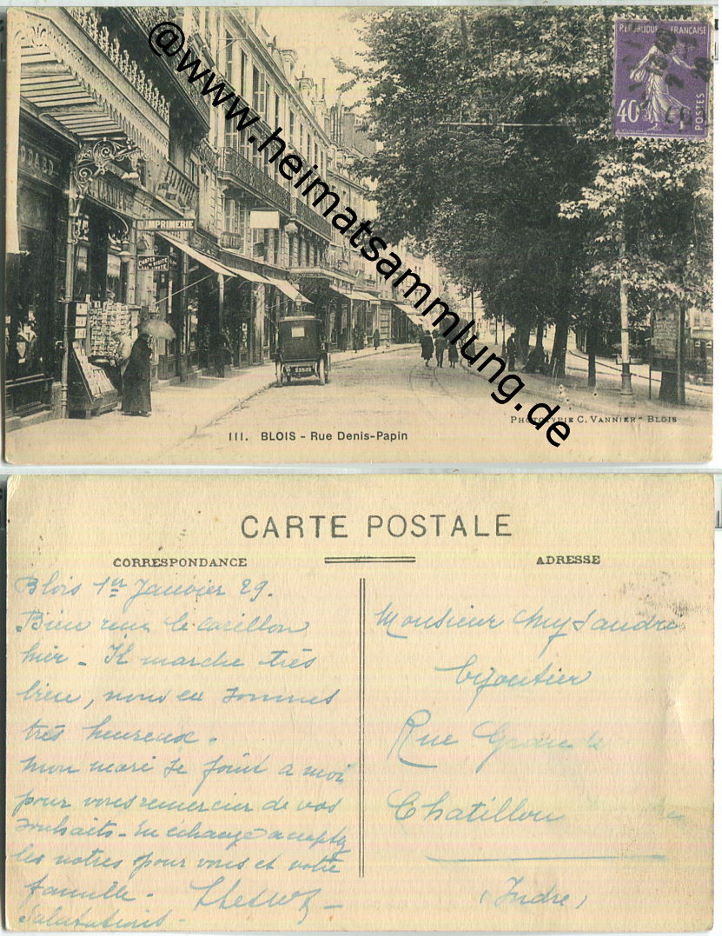 @www.heimatsammlung.de
REPUBLIQUE FRANÇAISE
40c
POSTES
IMPRIMERIE
CARTES
111. BLOIS - Rue Denis-Papin
PHOTOTYPIE C. VANNIER - BLOIS
CARTE POSTALE
CORRESPONDANCE
ADRESSE
Blois 1er Janvier 29.
Bien reçu le carillon
hier - Il marche très
bien, nous en sommes
très heureux.
Mon mari se joint à moi
pour vous remercier de vos
souhaits - En échange acceptez
les nôtres pour vous et votre
famille -
Salutations -
Monsieur
bijoutier
Rue Grande
Chatillon
(Indre)